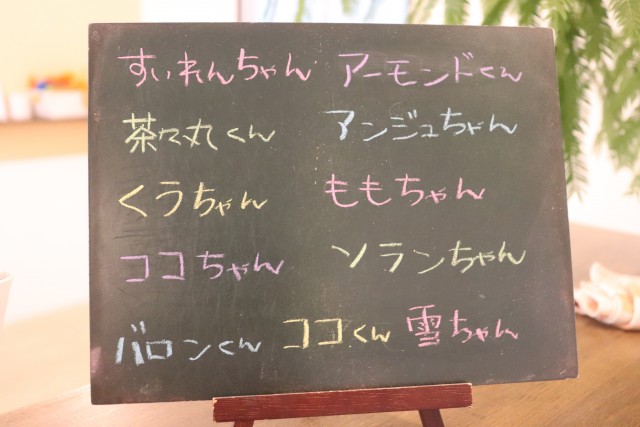 すいれんちゃん アーモンドくん
茶々丸くん アンジュちゃん
くうちゃん ももちゃん
ココちゃん ソランちゃん
バロンくん ココくん 雪ちゃん